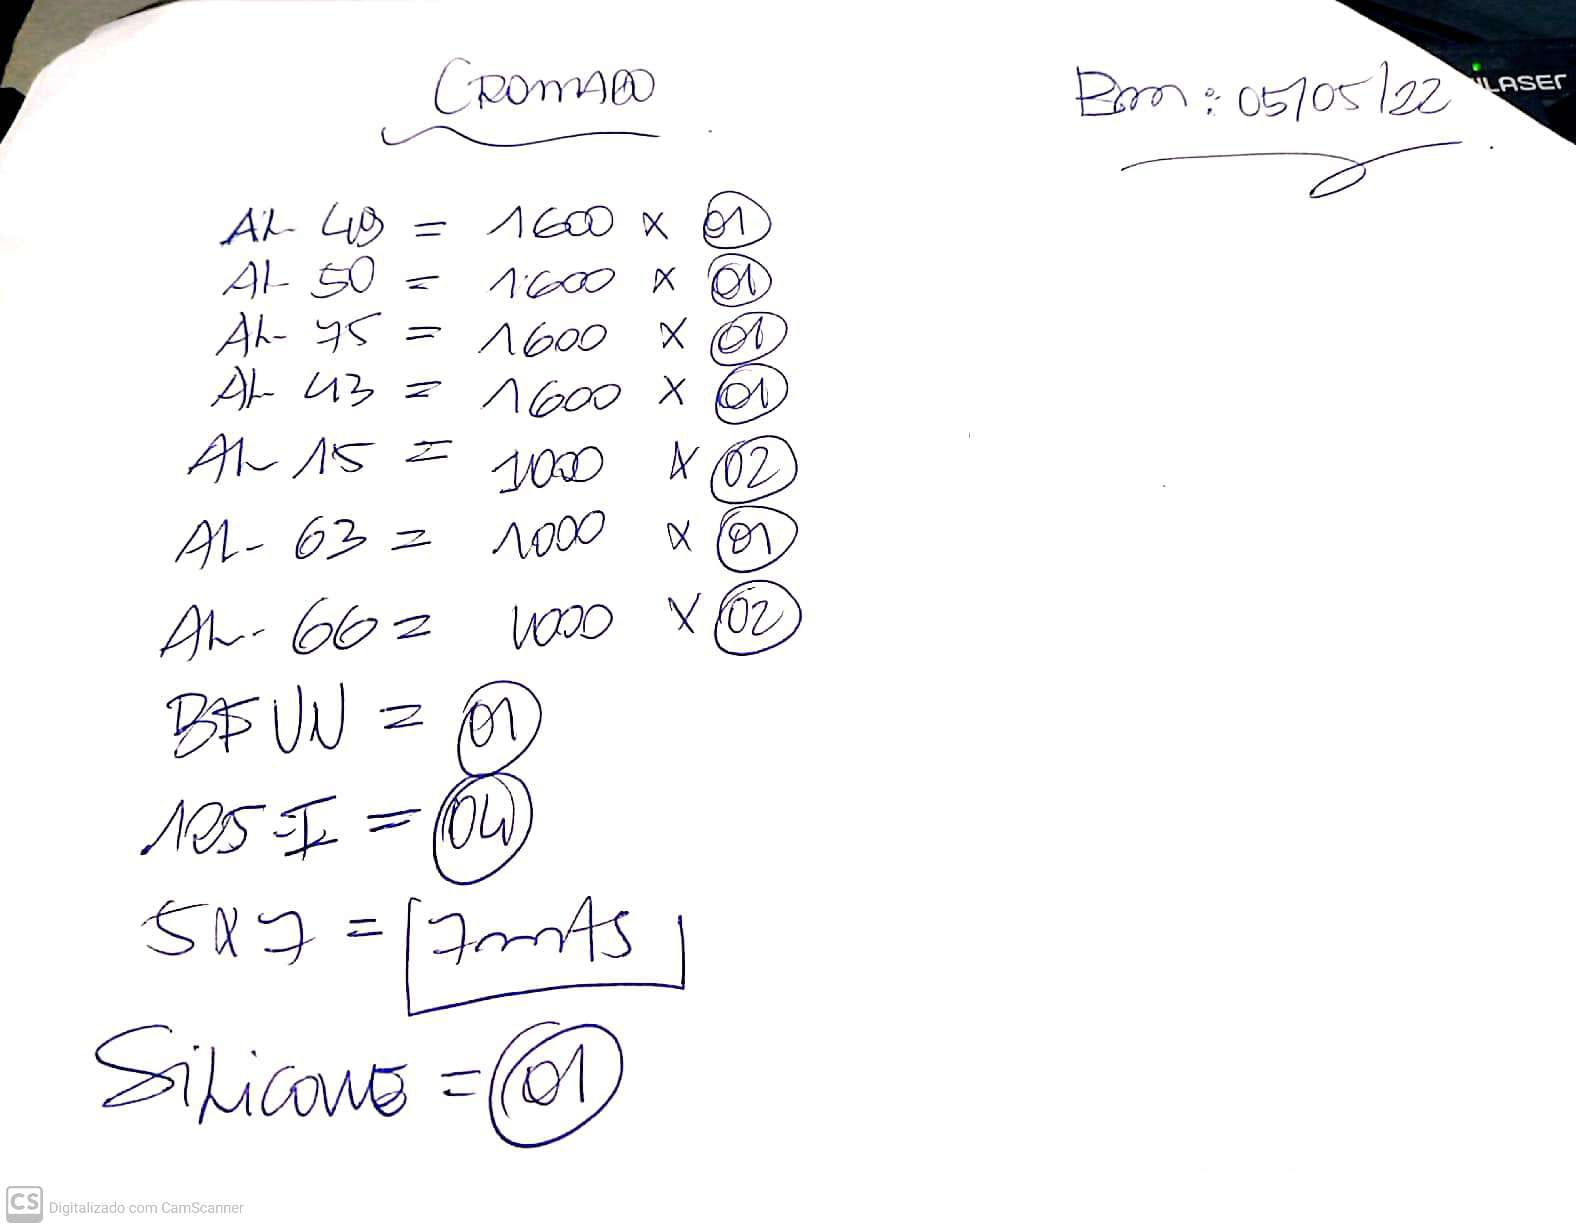 CROMADO
Bom: 05/05/22
iLASER
AL 49 = 1600 x 01
AL 50 = 1600 x 01
AL- 75 = 1600 x 01
AL 43 = 1600 x 01
AL 15 = 1000 x 02
AL- 63 = 1000 x 01
AL- 66 = 1000 x 02
BF UN = 01
125-I = 04
5x7 = 7mts
SiLicone = 01
CS Digitalizado com CamScanner